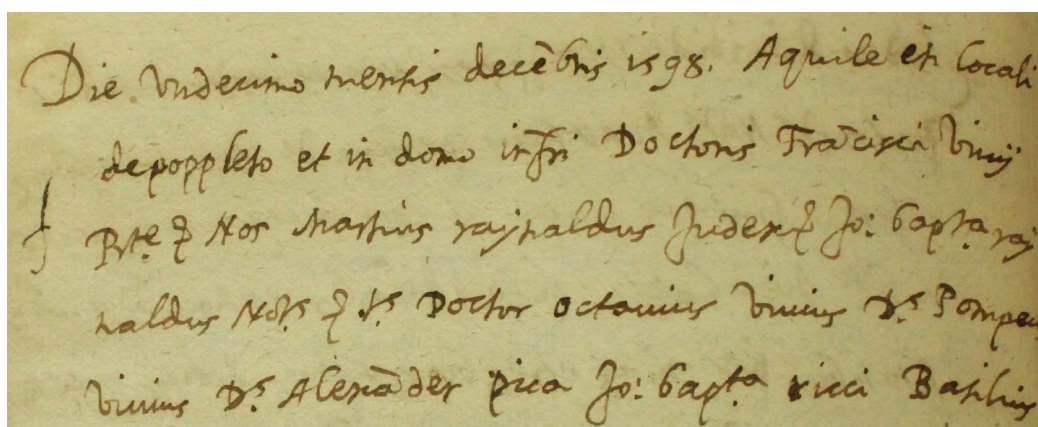 Die Undecimo mensis decẽbris 1598. Aquile et in locali
de poppleto et in domo infri Doctoris Frãcisci Vivij
Pñte Nos Martius raynaldus Judex Jo: bapta ray
naldus Nots ds Doctor octavius Vivius Ds Pompeus
Vivius Ds Alexãder pica Jo: bapta ricci Basilius